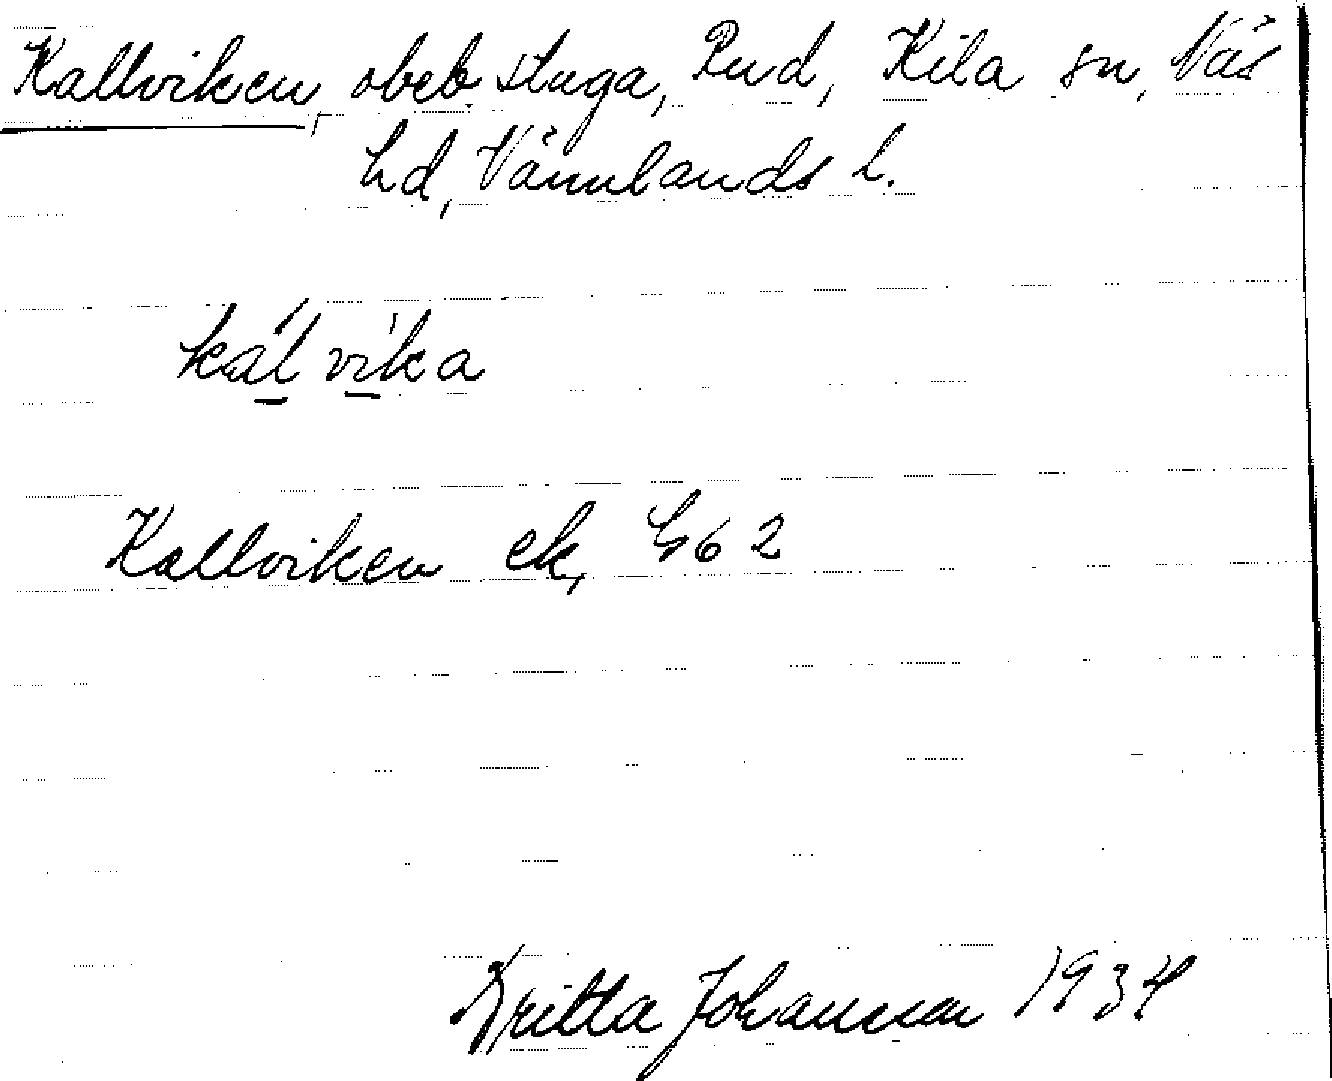 Kallviken, obeb. stuga, Rud, Kila sn, Näs
hd, Värmlands l.
kálvìka
Kallviken ek, G62
Britta Johansson 1934